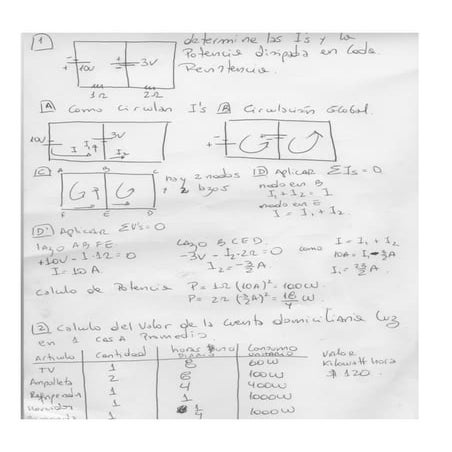 1 determine las Is y la
Potencia disipada en cada
Resistencia.
10V 3V
1Ω 2Ω
A Como circulan I's B Circulación Global.
10V 3V
I I1 I2
C A B C hay 2 nodos D Aplicar ΣIs = 0
+ 2 lazos nodo en B
I1 + I2 = I
nodo en E
F E D I = I1 + I2
D' Aplicar ΣV's = 0
Lazo ABFE. Lazo BCED. como I = I1 + I2
+10V - I·1Ω = 0 -3V - I2·2Ω = 0 10A = I1
I = 10 A. I2 = -3/2 A.
calculo de Potencia P = 1Ω (10A)² = 100W
P = 2Ω (3/2 A)² = 18/4 W.
2 calculo del Valor de la cuenta domiciliaria Luz
en 1 casa Promedio
Articulo Cantidad horas Consumo Valor
Kilowatt hora
TV 1 8 60W $ 120.
Ampolleta 2 6 100W
Refrigerador 1 4 400W
1 1 1000W
1 1/4 1000W